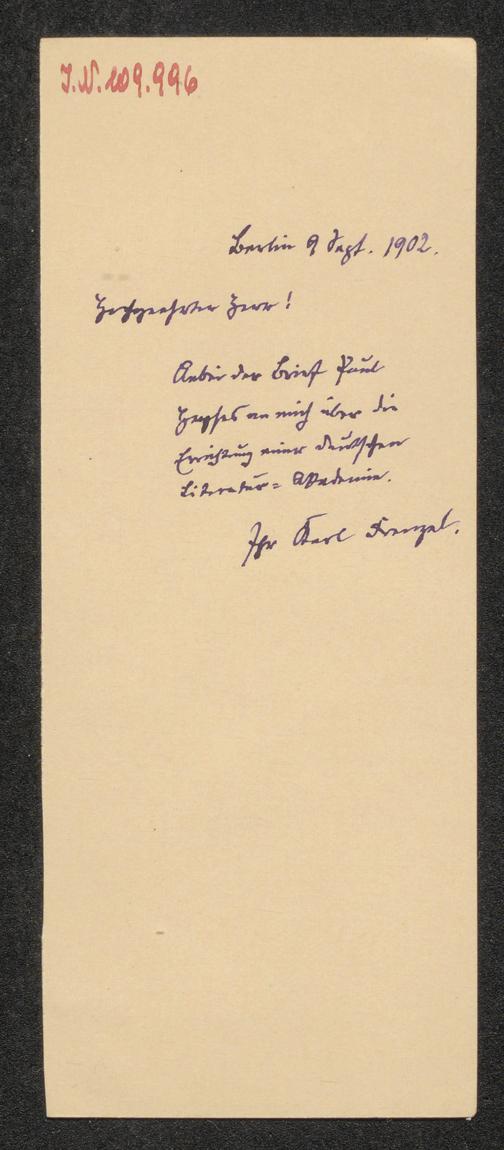 J.N. 109.996
Berlin 9 Sept. 1902.
Hochgeehrter Herr!
Anbei der Brief Paul
Heyses an mich über die
Errichtung einer deutschen
Literatur= Akademie.
Ihr Karl Frenzel.